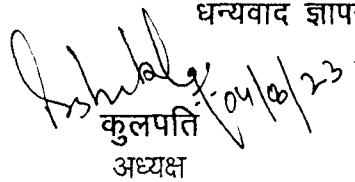 धन्यवाद ज्ञाप
04/06/23
कुलपति
अध्यक्ष